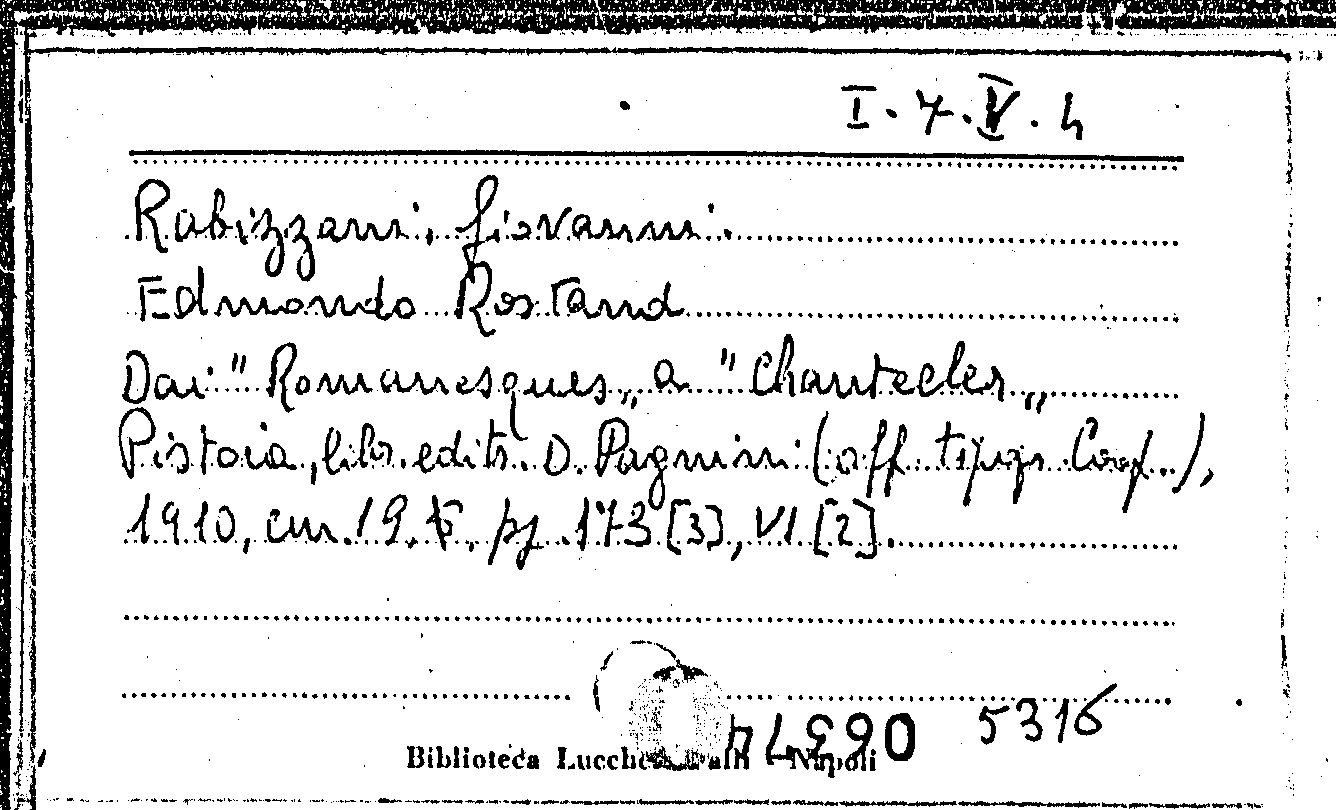 I.7.V.4
Rabizzani, Giovanni.
Edmondo Rostand
Dai "Romanesques„ a "Chantecler„
Pistoia, libr. edit. D. Pagnini (off. tipogr. Coop.),
1910, cm. 19.5, pp. 173 [3], VI [2].
5316
06374
Biblioteca Lucchesi Palli - Napoli